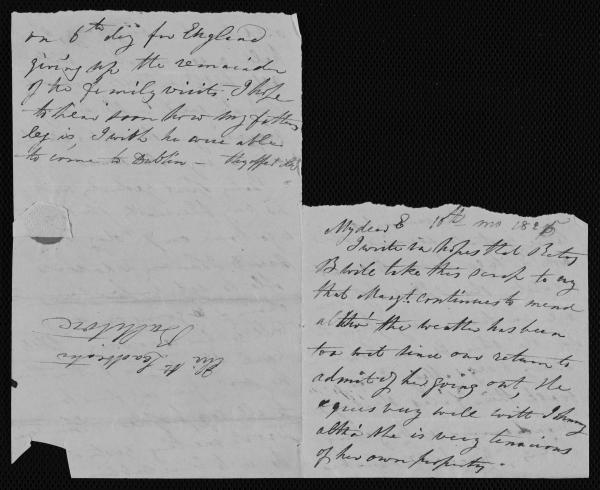 on 6th day for England
giving up the remainder
of the family visits. I hope
to hear soon how my fathers
leg is. I wish he were able
to come to Dublin - thy affect
Eliz. Leadbeater
Ballitore
My dear E 10th mo 182
I write in hopes that Betsy
B will take this scrap to say
that Margt. continues to mend
altho' the weather has been
too wet since our return to
admit of her going out, She
agrees very well with
altho' she is very tenacious
of her own property.